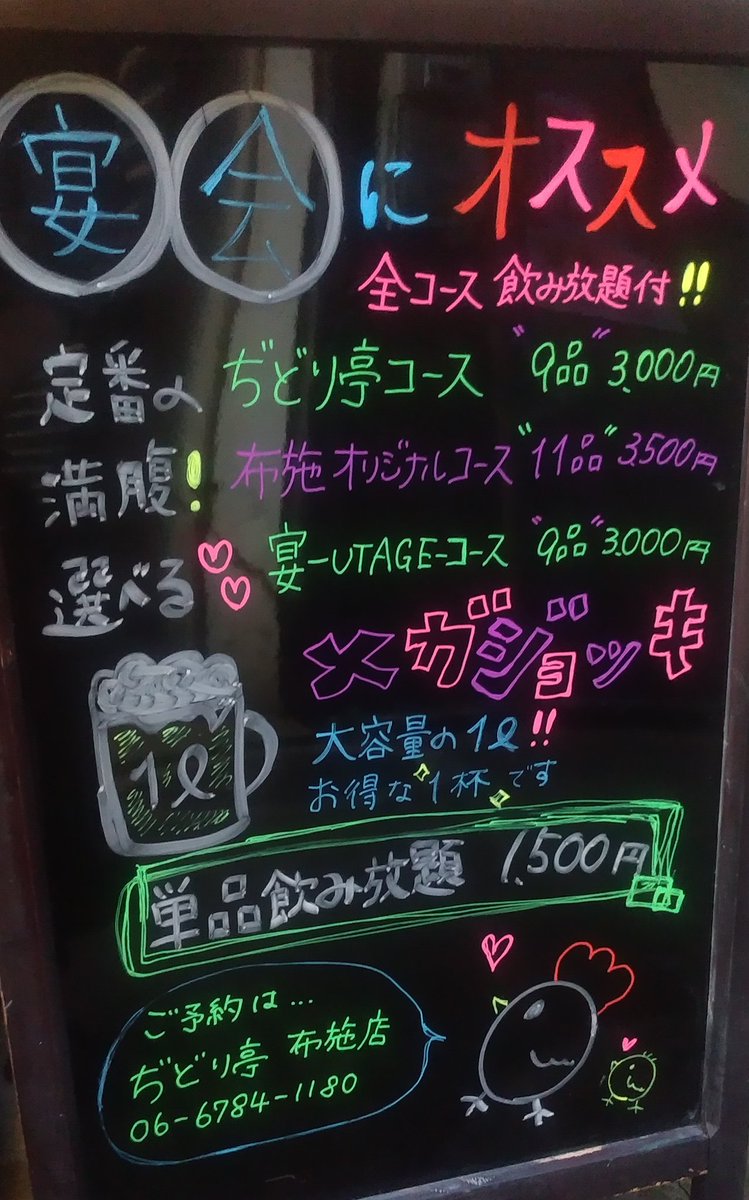 宴会にオススメ
全コース飲み放題付!!
定番の ぢどり亭コース "9品" 3,000円
満腹! 布施オリジナルコース "11品" 3,500円
選べる 宴-UTAGE-コース "9品" 3,000円
メガジョッキ
1ℓ
大容量の1ℓ!!
お得な1杯です
単品飲み放題 1,500円
ご予約は…
ぢどり亭 布施店
06-6784-1180